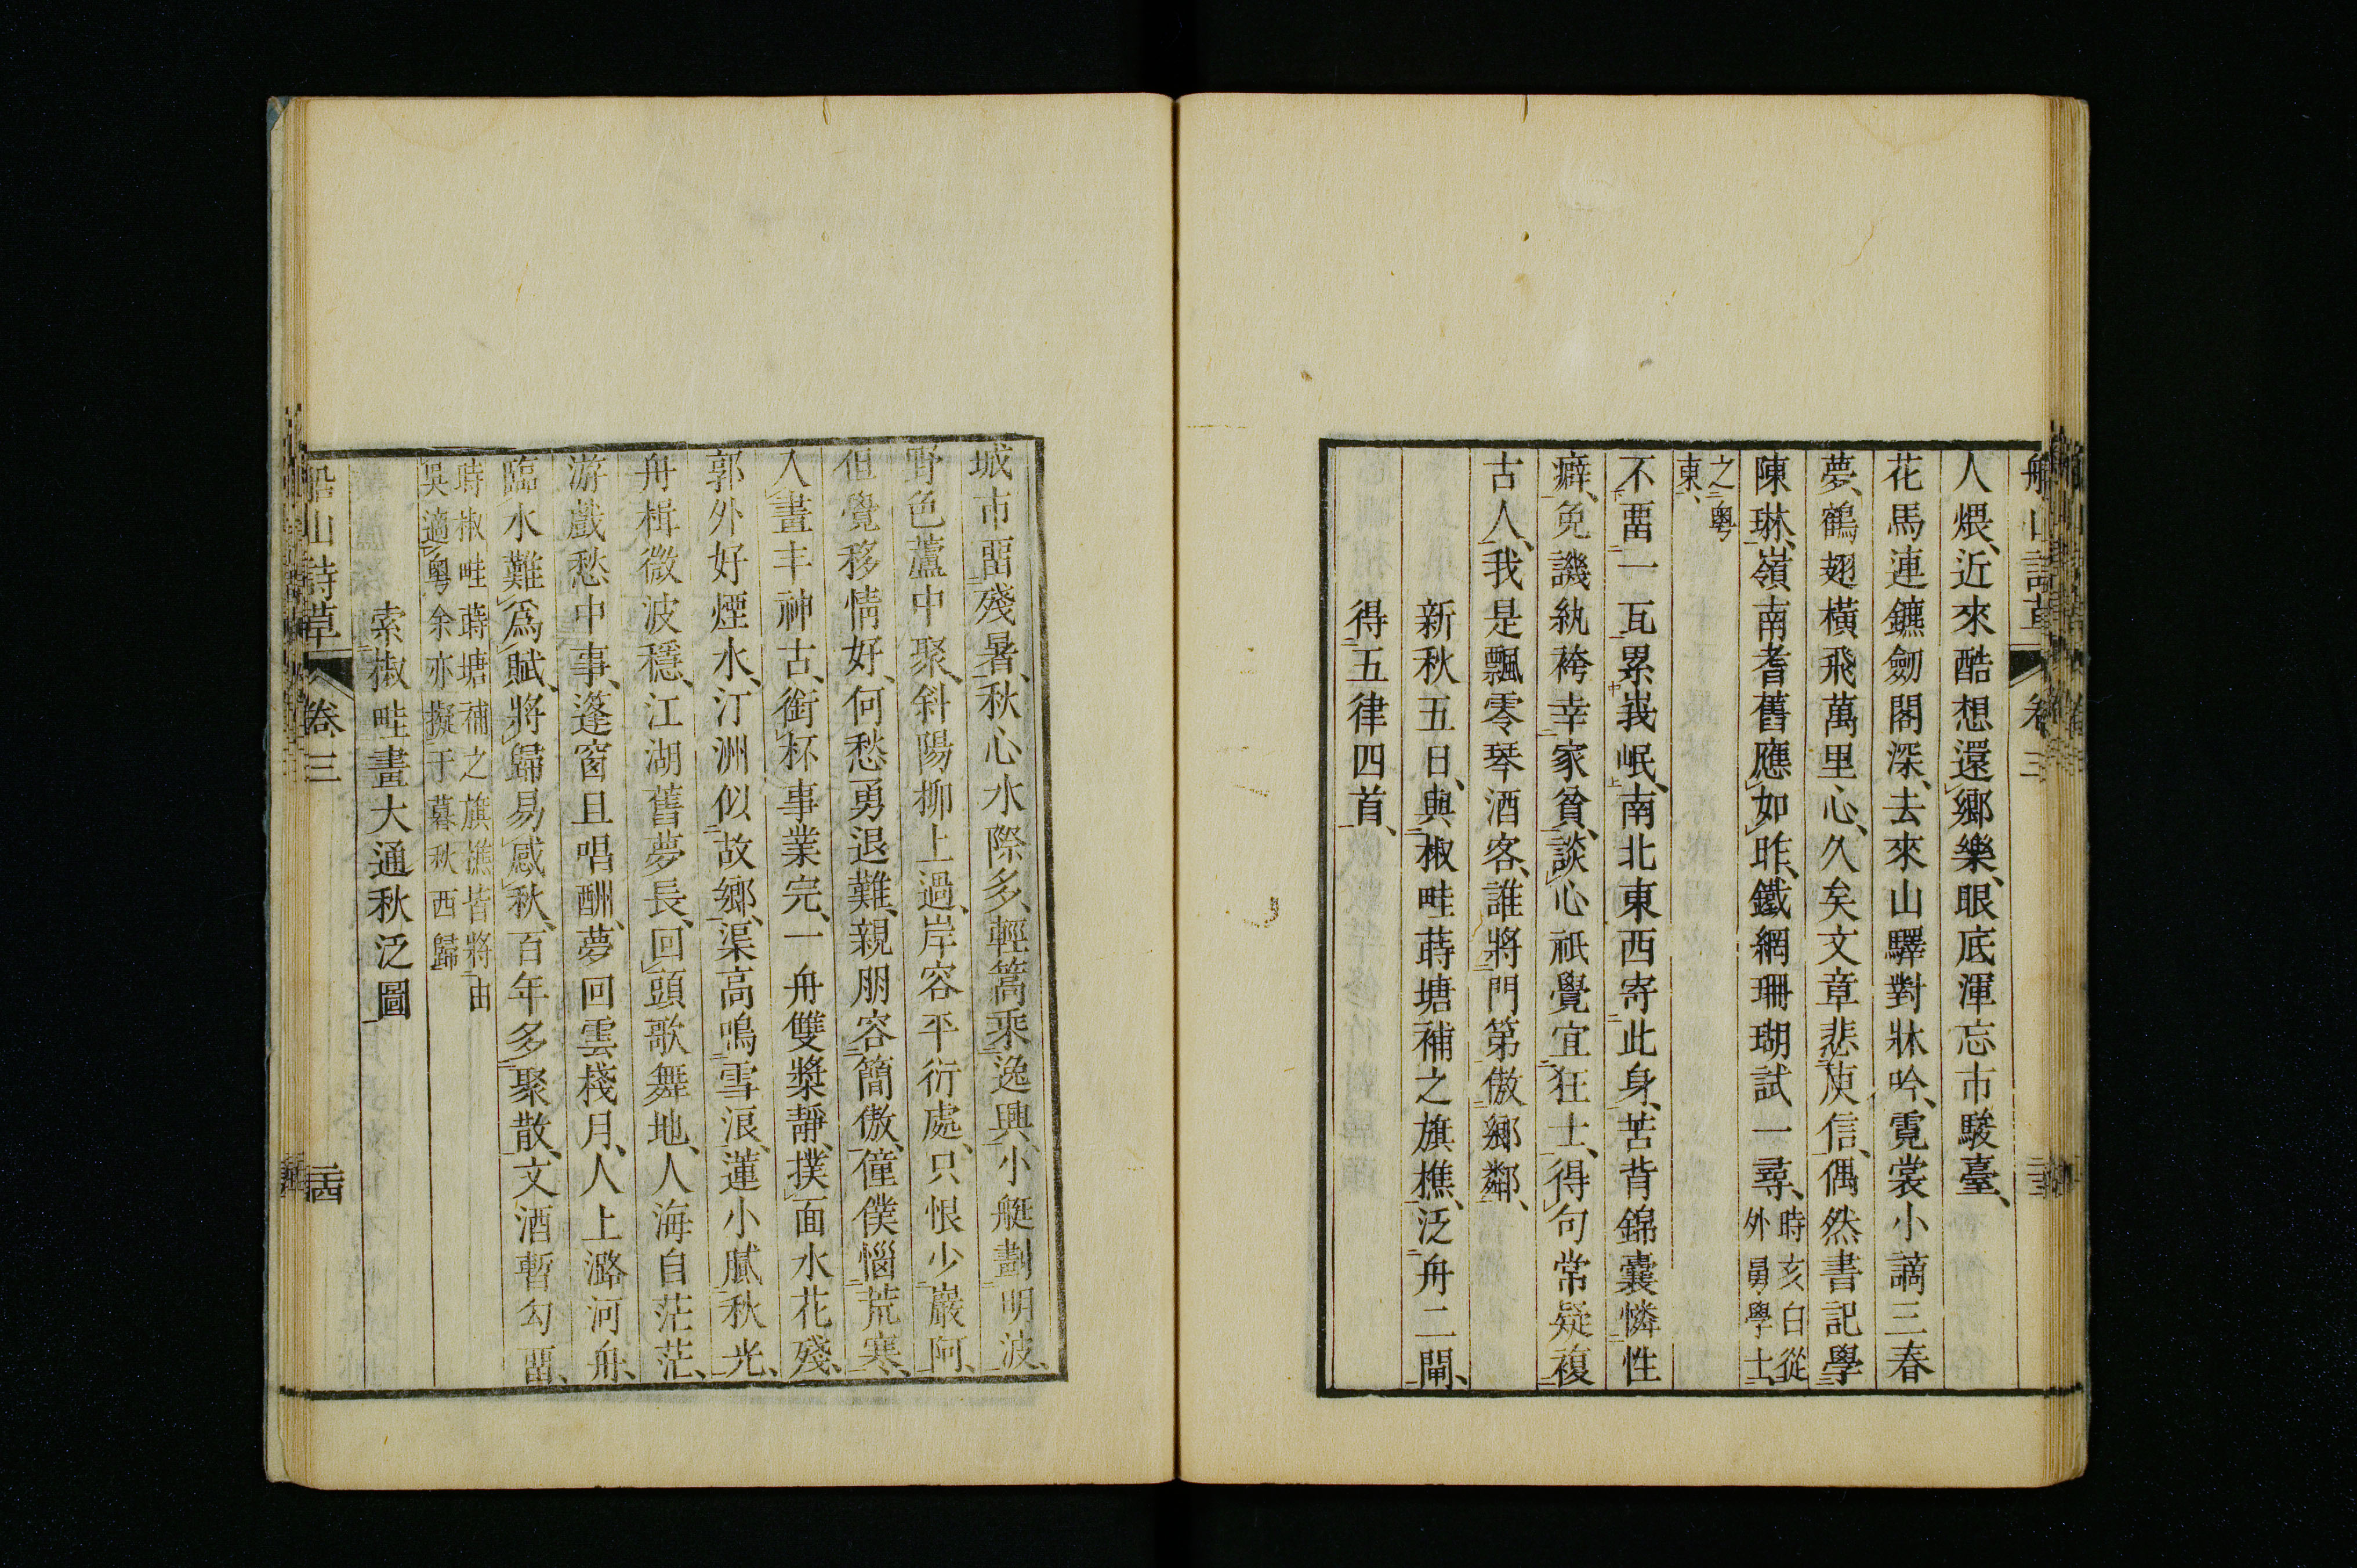 船山詩草 卷三
人煨、近來酷想還鄉樂、眼底渾忘市駿臺、
花馬連鑣劒閣深、去來山驛對牀吟、霓裳小謫三春
夢、鶴翅橫飛萬里心、久矣文章悲庾信、偶然書記學
陳琳、嶺南耆舊應如昨、鐵網珊瑚試一尋、時亥白從
外舅學士
之粵
東、
不畱一瓦累峩岷、南北東西寄此身、苦背錦囊憐性
癖、免譏紈袴幸家貧、談心祇覺宜狂士、得句常疑複
古人、我是飄零琴酒客、誰將門第傲鄉鄰、
新秋五日、與椒畦蒔塘補之旗樵、泛舟二閘、
得五律四首、
城市畱殘暑、秋心水際多、輕篙乘逸興、小艇劃明波、
野色蘆中聚、斜陽柳上過、岸容平衍處、只恨少巖阿、
但覺移情好、何愁勇退難、親朋容簡傲、僮僕惱荒寒、
入畫丰神古、銜杯事業完、一舟雙槳靜、撲面水花殘、
郭外好煙水、汀洲似故鄉、渠高鳴雪浪、蓮小膩秋光、
舟楫微波穩、江湖舊夢長、回頭歌舞地、人海自茫茫、
游戲愁中事、篷窗且唱酬、夢回雲棧月、人上潞河舟、
臨水難爲賦、將歸易感秋、百年多聚散、文酒暫勾畱、
時椒畦蒔塘補之旗樵皆將由
吳適粵余亦擬于暮秋西歸
索椒畦畫大通秋泛圖
船山詩草 卷三 二十四